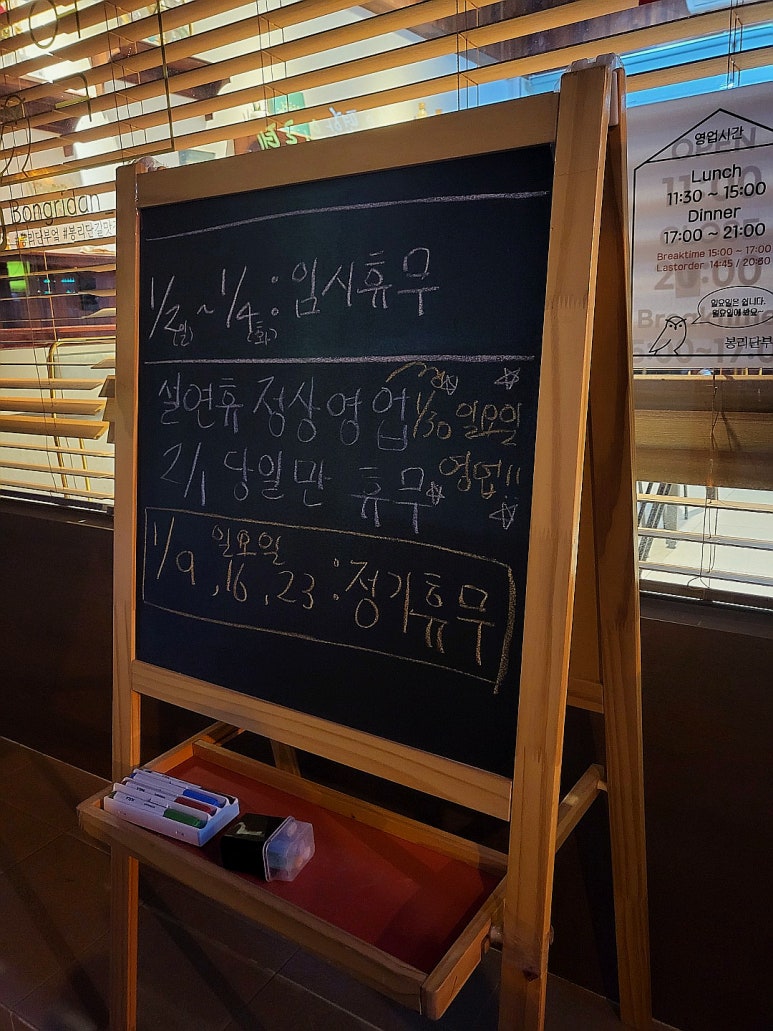 Bongridan
1/2(일)~1/4(화):임시휴무
설연휴 정상영업 1/30 일요일
2/1 당일만 휴무 영업!!
일요일
1/9, 16, 23 : 정기휴무
영업시간
Lunch
11:30 ~ 15:00
Dinner
17:00 ~ 21:00
Breaktime 15:00 ~ 17:00
Lastorder 14:45 / 20:30
일요일은 쉽니다.
월요일에 봐요~
봉리단부